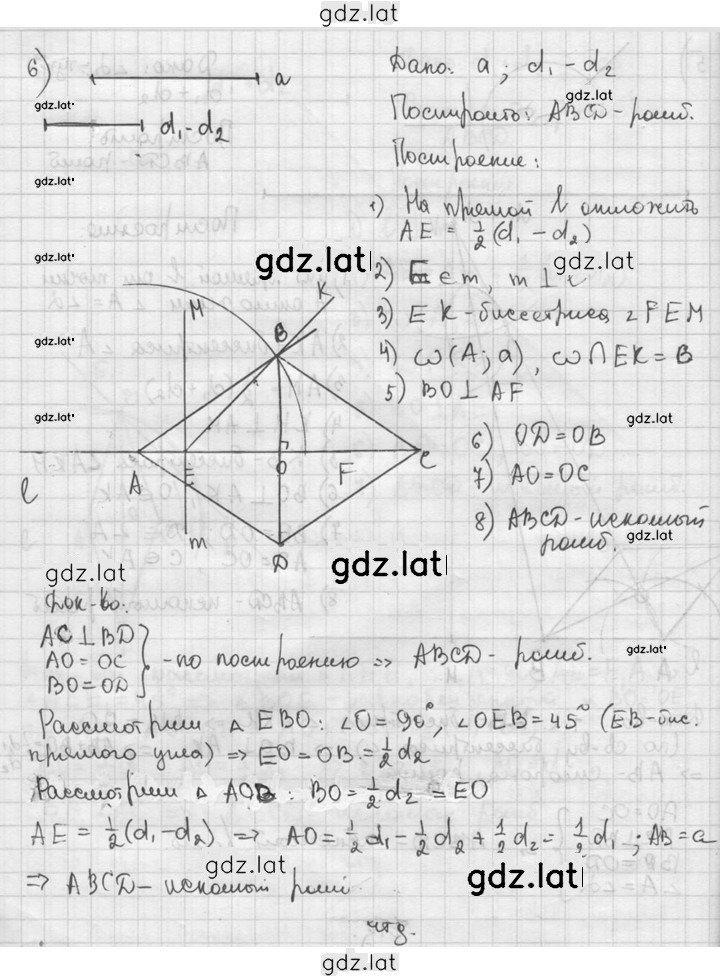 gdz.lat
6)
a
d₁-d₂
Дано: a ; d₁ - d₂
Построить: ABCD - ромб.
Построение:
1) На прямой l отложить
AE = ½(d₁ - d₂)
2) E ∈ m, m ⊥ l
3) EK - биссектриса ∠FEM
4) ω(A; a), ω∩EK = B
5) BO ⊥ AF
6) OD = OB
7) AO = OC
8) ABCD - искомый
ромб.
M
K
B
A
E
O
F
C
l
m
D
gdz.lat
gdz.lat
gdz.lat
gdz.lat
gdz.lat
gdz.lat
gdz.lat
gdz.lat
gdz.lat
gdz.lat
gdz.lat
gdz.lat
gdz.lat
Док-во:
AC ⊥ BD
AO = OC } - по построению => ABCD - ромб.
BO = OD
gdz.lat
Рассмотрим △ EBO: ∠O = 90°, ∠OEB = 45° (EB - бис.
прямого угла) => EO = OB = ½d₂
Рассмотрим △ AOB : BO = ½ d₂ = EO
AE = ½(d₁ - d₂) => AO = ½ d₁ - ½ d₂ + ½ d₂ = ½ d₁ ; AB = a
=> ABCD - искомый ромб.
gdz.lat
gdz.lat
чтд.
gdz.lat